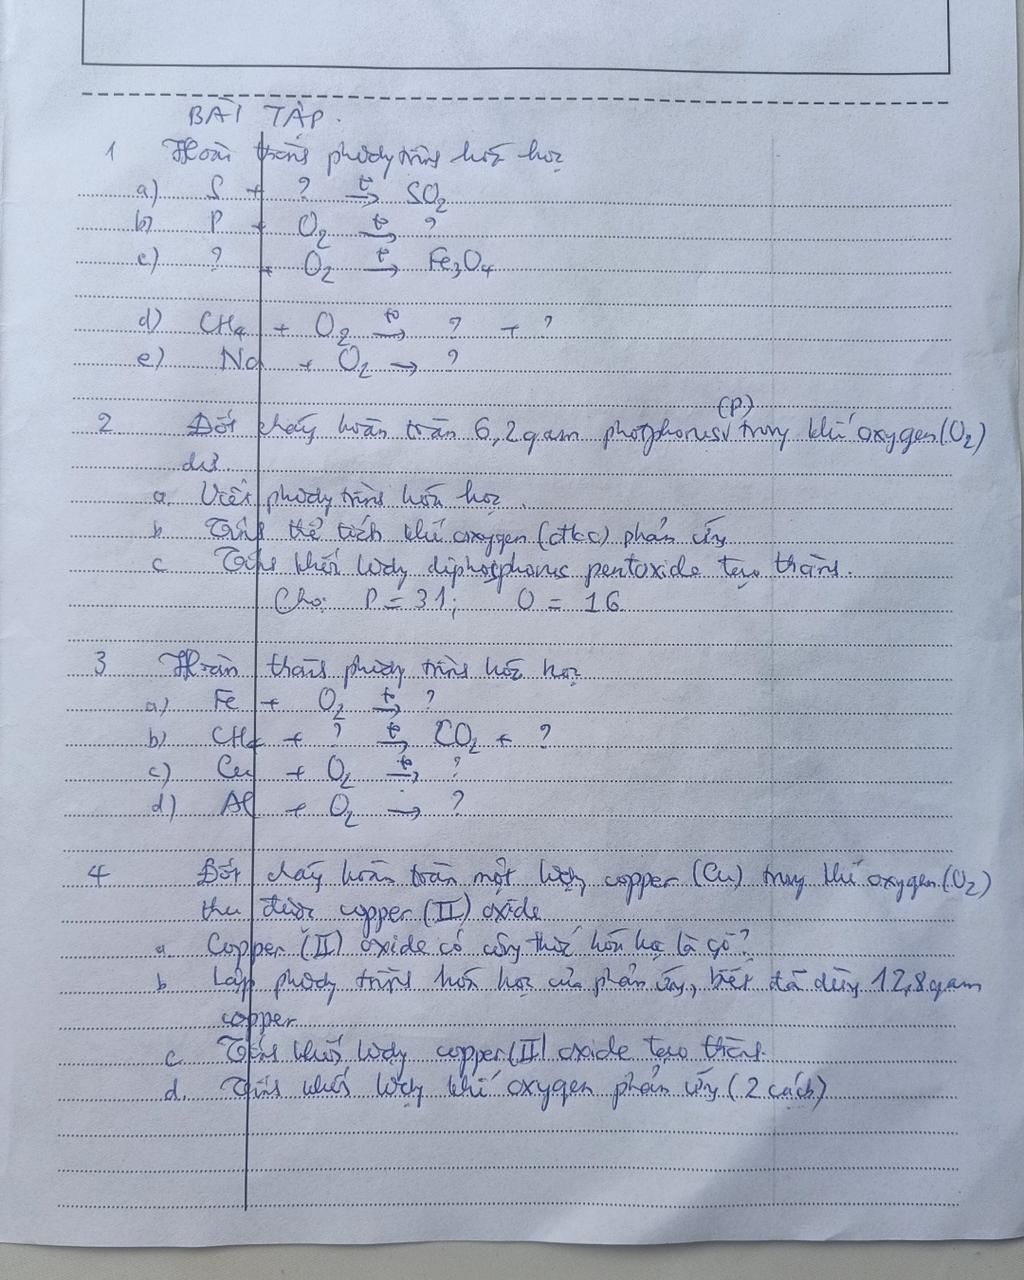 BÀI TẬP.
1 Hoàn thành phương trình hóa học
a) S + ? t° → SO2
b) P + O2 t° → ?
c) ? + O2 t° → Fe3O4
d) CH4 + O2 t° → ? + ?
e) Na + O2 → ?
(P)
2 Đốt cháy hoàn toàn 6,2 gam photphorus trong khí oxygen (O2)
dư.
a. Viết phương trình hóa học.
b Tính thể tích khí oxygen (đkc) phản ứng
c Tính khối lượng diphosphorus pentoxide tạo thành.
Cho: P = 31; O = 16
3 Hoàn thành phương trình hóa học
a) Fe + O2 t° → ?
b) CH4 + ? t° → CO2 + ?
c) Cu + O2 t° → ?
d) Al + O2 → ?
4 Đốt cháy hoàn toàn một lượng copper (Cu) trong khí oxygen (O2)
thu được copper (II) oxide
a. Copper (II) oxide có công thức hóa học là gì?
b Lập phương trình hóa học của phản ứng, biết đã dùng 12,8 gam
copper
c. Tính khối lượng copper (II) oxide tạo thành.
d. Tính khối lượng khí oxygen phản ứng (2 cách)